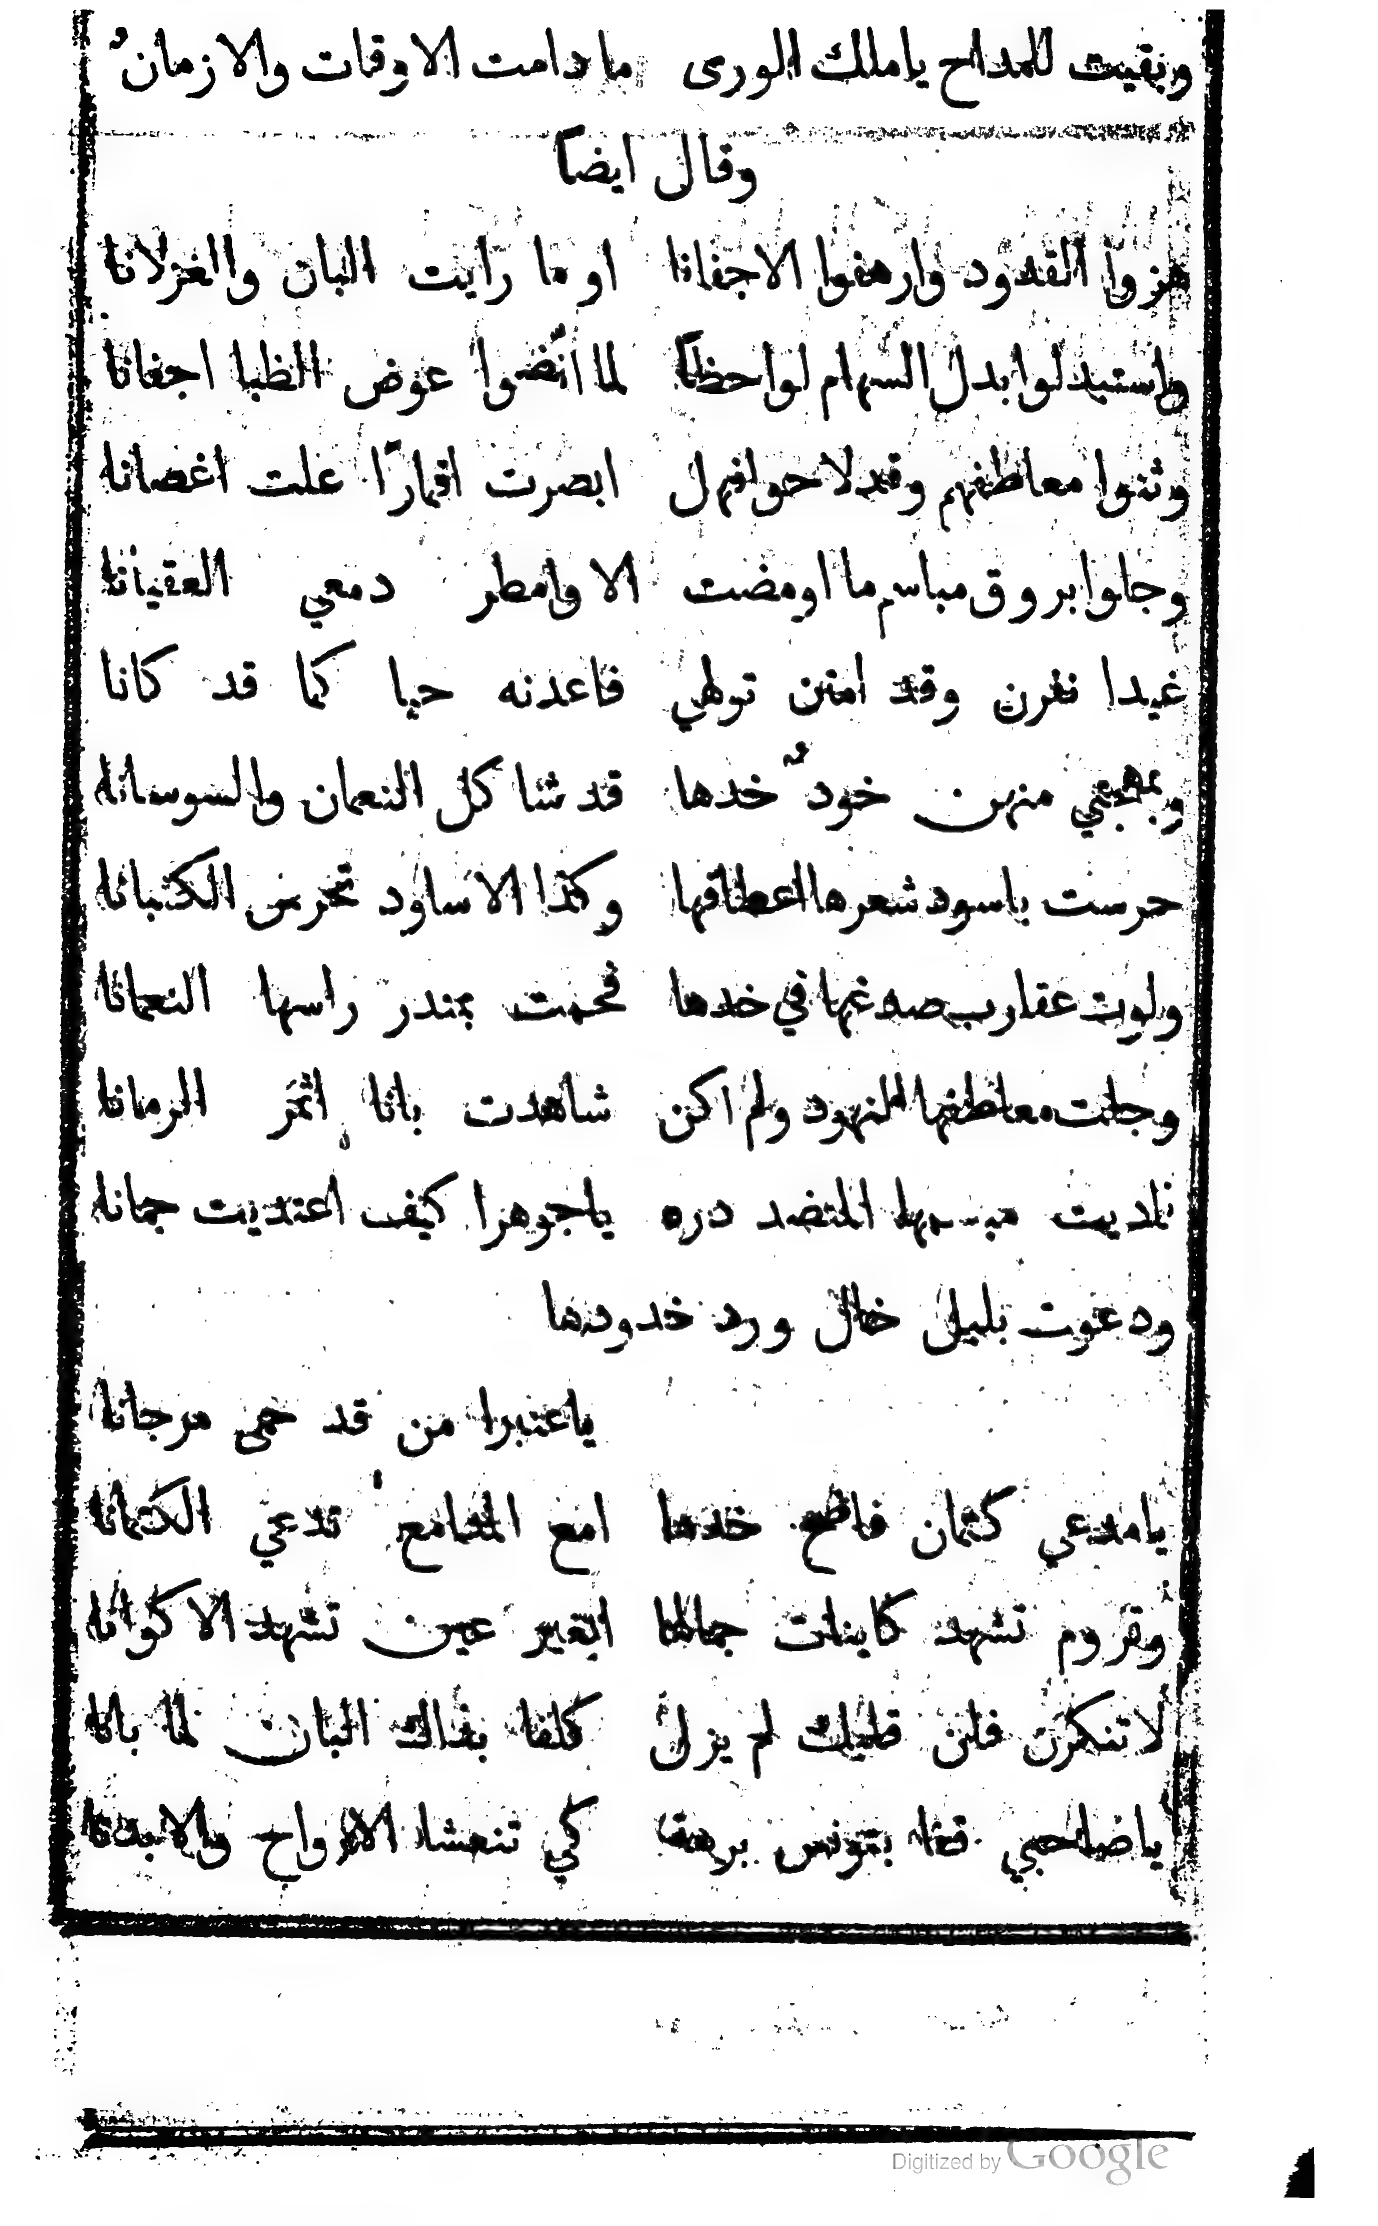 وبقيت للمداح ياملك الورى ما دامت الاوقات والازمانُ
وقال ايضاً
هزوا القدود وارهفوا الاجفانا او ما رايت البان والغزلانا
واستبدلوا بدل السهام لواحظاً لما انتضوا عوض الظبا اجفانا
وثنوا معاطفهم وقد لاحوا فهل ابصرت اقمارًا علت اغصانا
وجلوا بروق مباسم ما اومضت الا وامطر دمعي العقيانا
غيدا نفرن وقد امنن تولهي فاعدنه حيا كما قد كانا
وبمهجتي منهن خودٌ خدها قد شاكل النعمان والسوسانا
حرست باسود شعرها اعطافها وكذا الاساود تحرس الكثبانا
ولوت عقارب صدغها في خدها فحمت بمندر راسها النعمانا
وجلت معاطفها النهود ولم اكن شاهدت بانا اثمر الرمانا
ناديت مبسمها المنضد دره ياجوهرا كيف اعتديت جمانا
ودعوت بلبل خال ورد خدودها
ياعنبرا من قد حمى مرجانا
يامدعي كتمان فاضح خدها امع المدامع تدعي الكتمانا
وتروم تشهد كاينات جمالها ابغير عين تشهد الاكوانا
لا تنكرن فلن قلبك لم يزل كلفا بذاك البان لما بانا
ياصاحبي قفا بتونس برهة كي تنعشا الارواح والابدانا
Digitized by Google